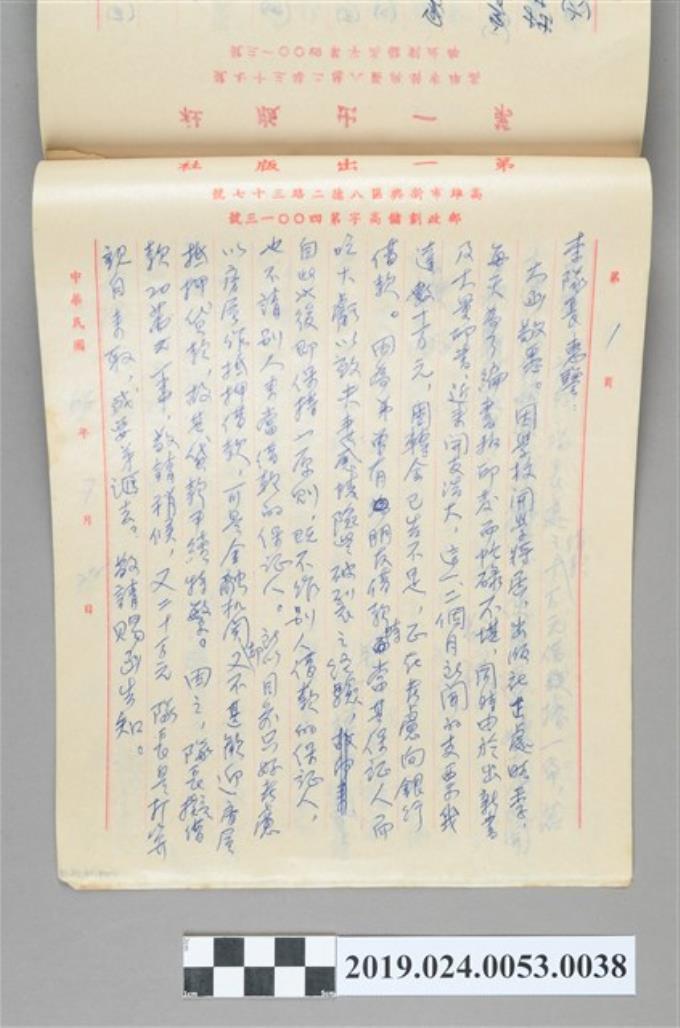 第一出版社
高雄市新興區八德二路三十七號
郵政劃儲高字第四〇〇一三號
第 1 頁
李隊長惠鑒：
大函敬悉。因學校開學將屆，出版記書處旺季，
每天為了編書搬印表而忙碌不堪，同時由於出新書
及大量印書，近來開支浩大，這一、二個月新開的支票幾
達數十万元，周轉金已告不足，正在考慮向銀行
借款。因為弟曾有朋友借款時當其保证人而
吃大虧以致夫妻感情险些破裂之经驗，
自此以後即保持一原則，既不作别人借款的保证人，
也不請别人來當借款的保证人。所以目前只好考慮
以房屋作抵押借款，可是金融机関却又不甚歡迎房屋
抵押貸款，故其貸款手續特繁。因之，隊長擬借
款20萬元事，敬請稍候，又二十万元 隊長是打算
親自來取，或要弟匯去。敬請賜函告知。
中華民國 66 年 7 月 日
2019.024.0053.0038